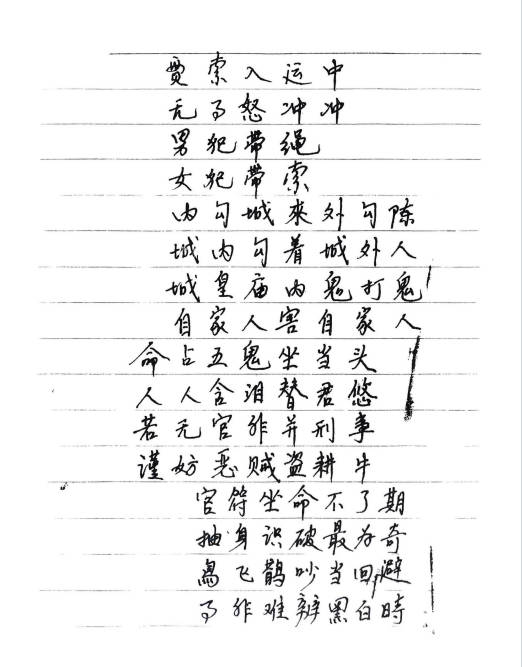 贯索入运中
无事怒冲冲
男犯带绳
女犯带索
内勾城來外勾陈
城内勾着城外人
城皇庙内鬼打鬼
自家人害自家人
命占五鬼坐当头
人人含泪替君悠
若无官非并刑事
谨妨恶贼盗耕牛
官符坐命不了期
抽身识破最为奇
鸟飞鹊吵当回避
事非难辨黑白時